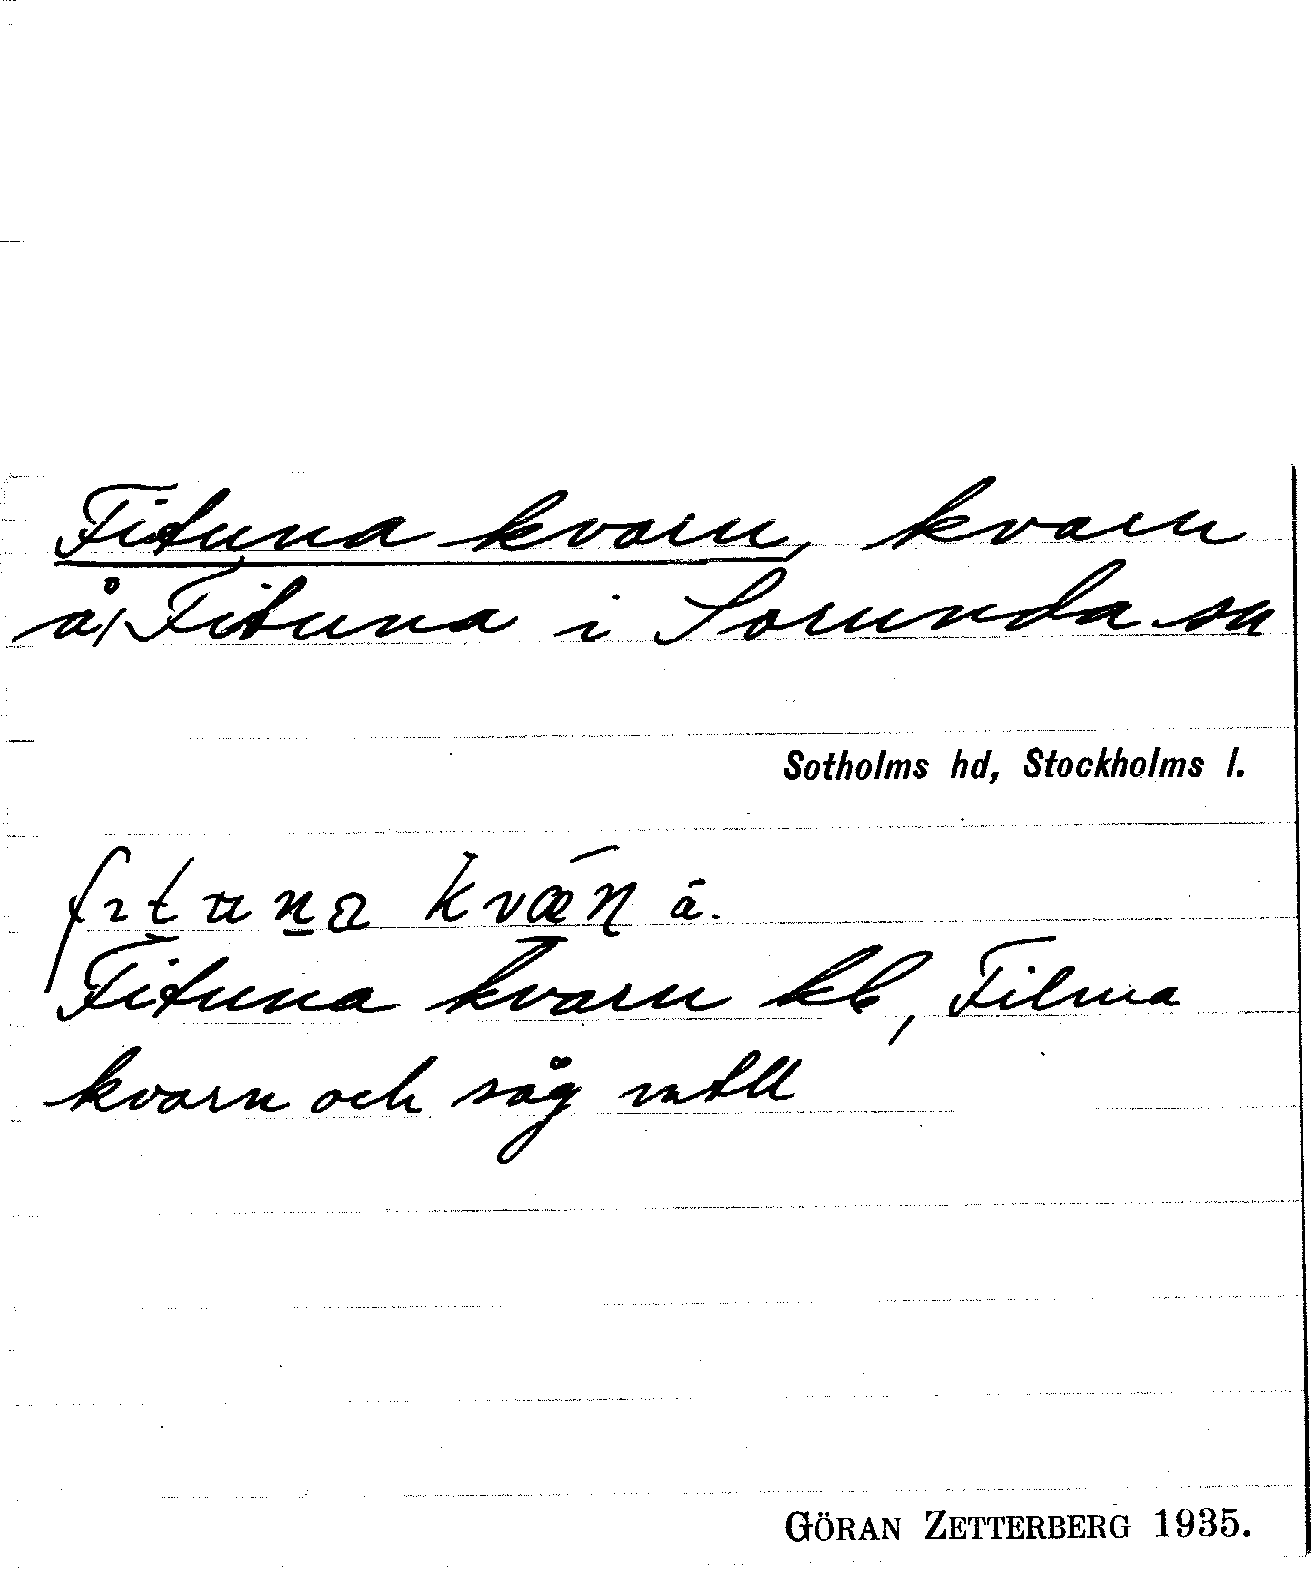 Fituna kvarn, kvarn
å, Fituna i Sorunda sn
Sotholms hd, Stockholms l.
kvǽɳ á.
Fituna kvarn kb, Filma
kvarn och såg mtll
GÖRAN ZETTERBERG 1935.